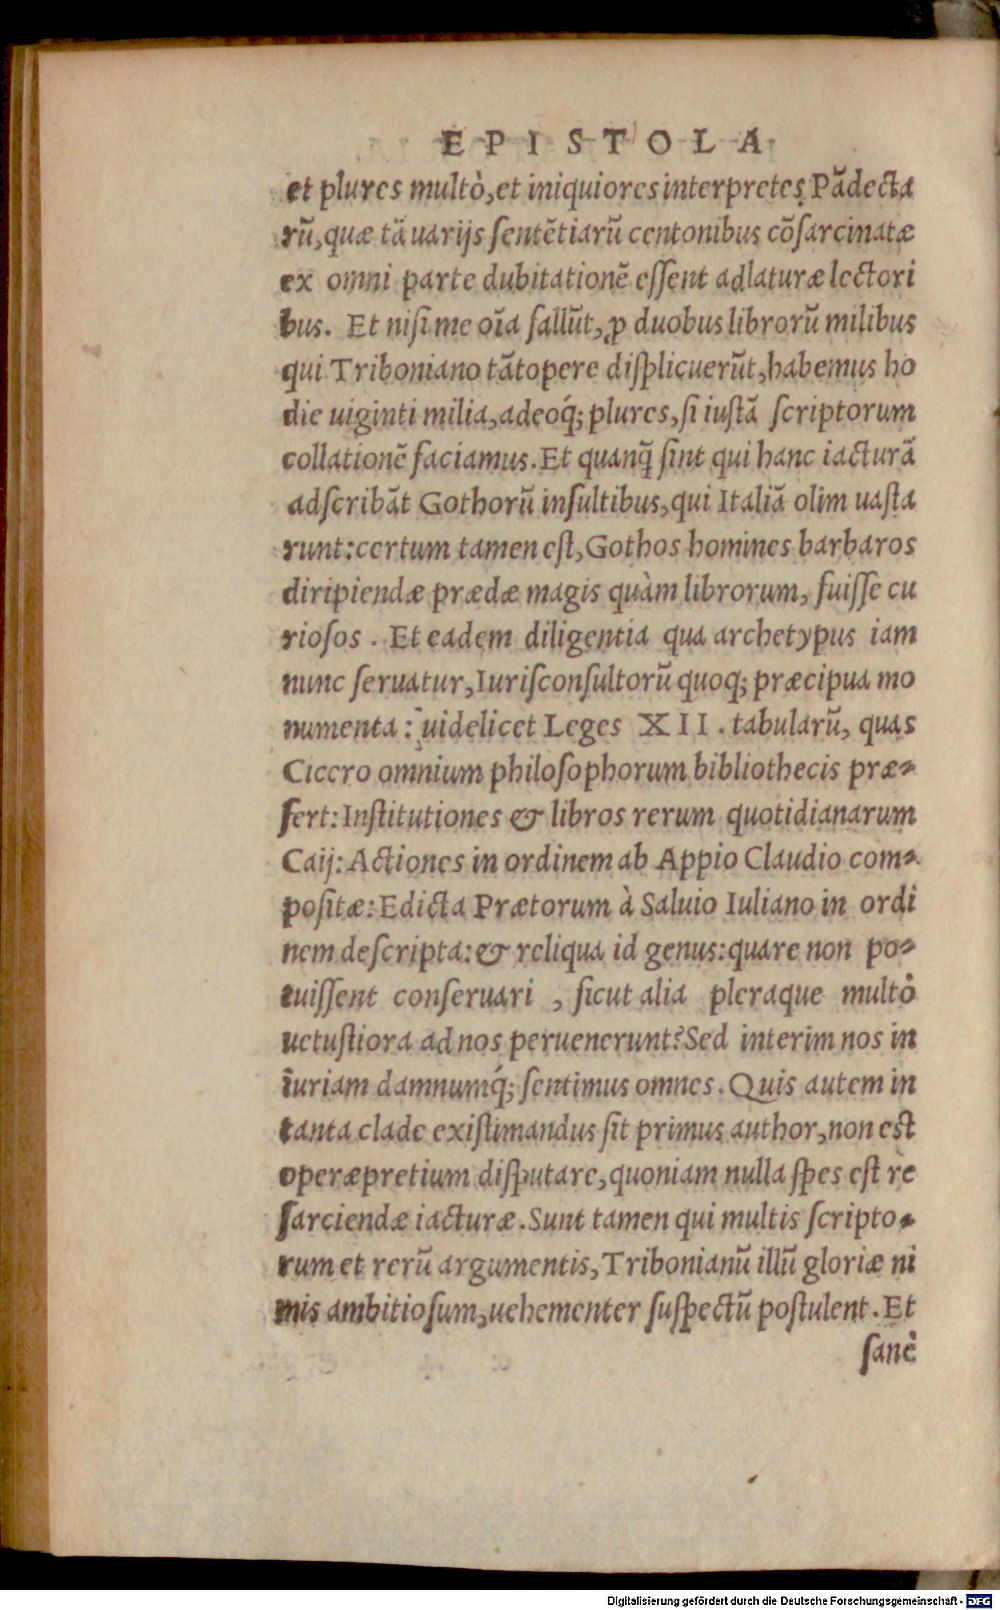 EPISTOLA
et plures multò, et iniquiores interpretes Pãdecta
rũ, quæ tã uarijs sentẽtiarũ centonibus cõsarcinatæ
ex omni parte dubitationẽ essent adlaturæ lectori
bus. Et nisi me oĩa fallũt, ꝓ duobus librorũ milibus
qui Triboniano tãtopere displicuerũt, habemus ho
die uiginti milia, adeoq́; plures, si iustã scriptorum
collationẽ faciamus. Et quanq̃ sint qui hanc iacturã
adscribãt Gothorũ insultibus, qui Italiã olim uasta
runt: certum tamen est, Gothos homines barbaros
diripiendæ prædæ magis quàm librorum, fuisse cu
riosos. Et eadem diligentia qua archetypus iam
nunc seruatur, Iurisconsultorũ quoq; præcipua mo
numenta: uidelicet Leges XII. tabularũ, quas
Cicero omnium philosophorum bibliothecis præ-
fert: Institutiones & libros rerum quotidianarum
Caij: Actiones in ordinem ab Appio Claudio com-
positæ: Edicta Prætorum à Saluio Iuliano in ordi
nem descripta: & reliqua id genus: quare non po-
tuissent conseruari, sicut alia pleraque multò
uetustiora ad nos peruenerunt? Sed interim nos in
iuriam damnumq́; sentimus omnes. Quis autem in
tanta clade existimandus sit primus author, non est
operæpretium disputare, quoniam nulla spes est re
sarciendæ iacturæ. Sunt tamen qui multis scripto-
rum et rerũ argumentis, Tribonianũ illũ gloriæ ni
mis ambitiosum, uehementer suspectũ postulent. Et
sanè
Digitalisierung gefördert durch die Deutsche Forschungsgemeinschaft - DFG